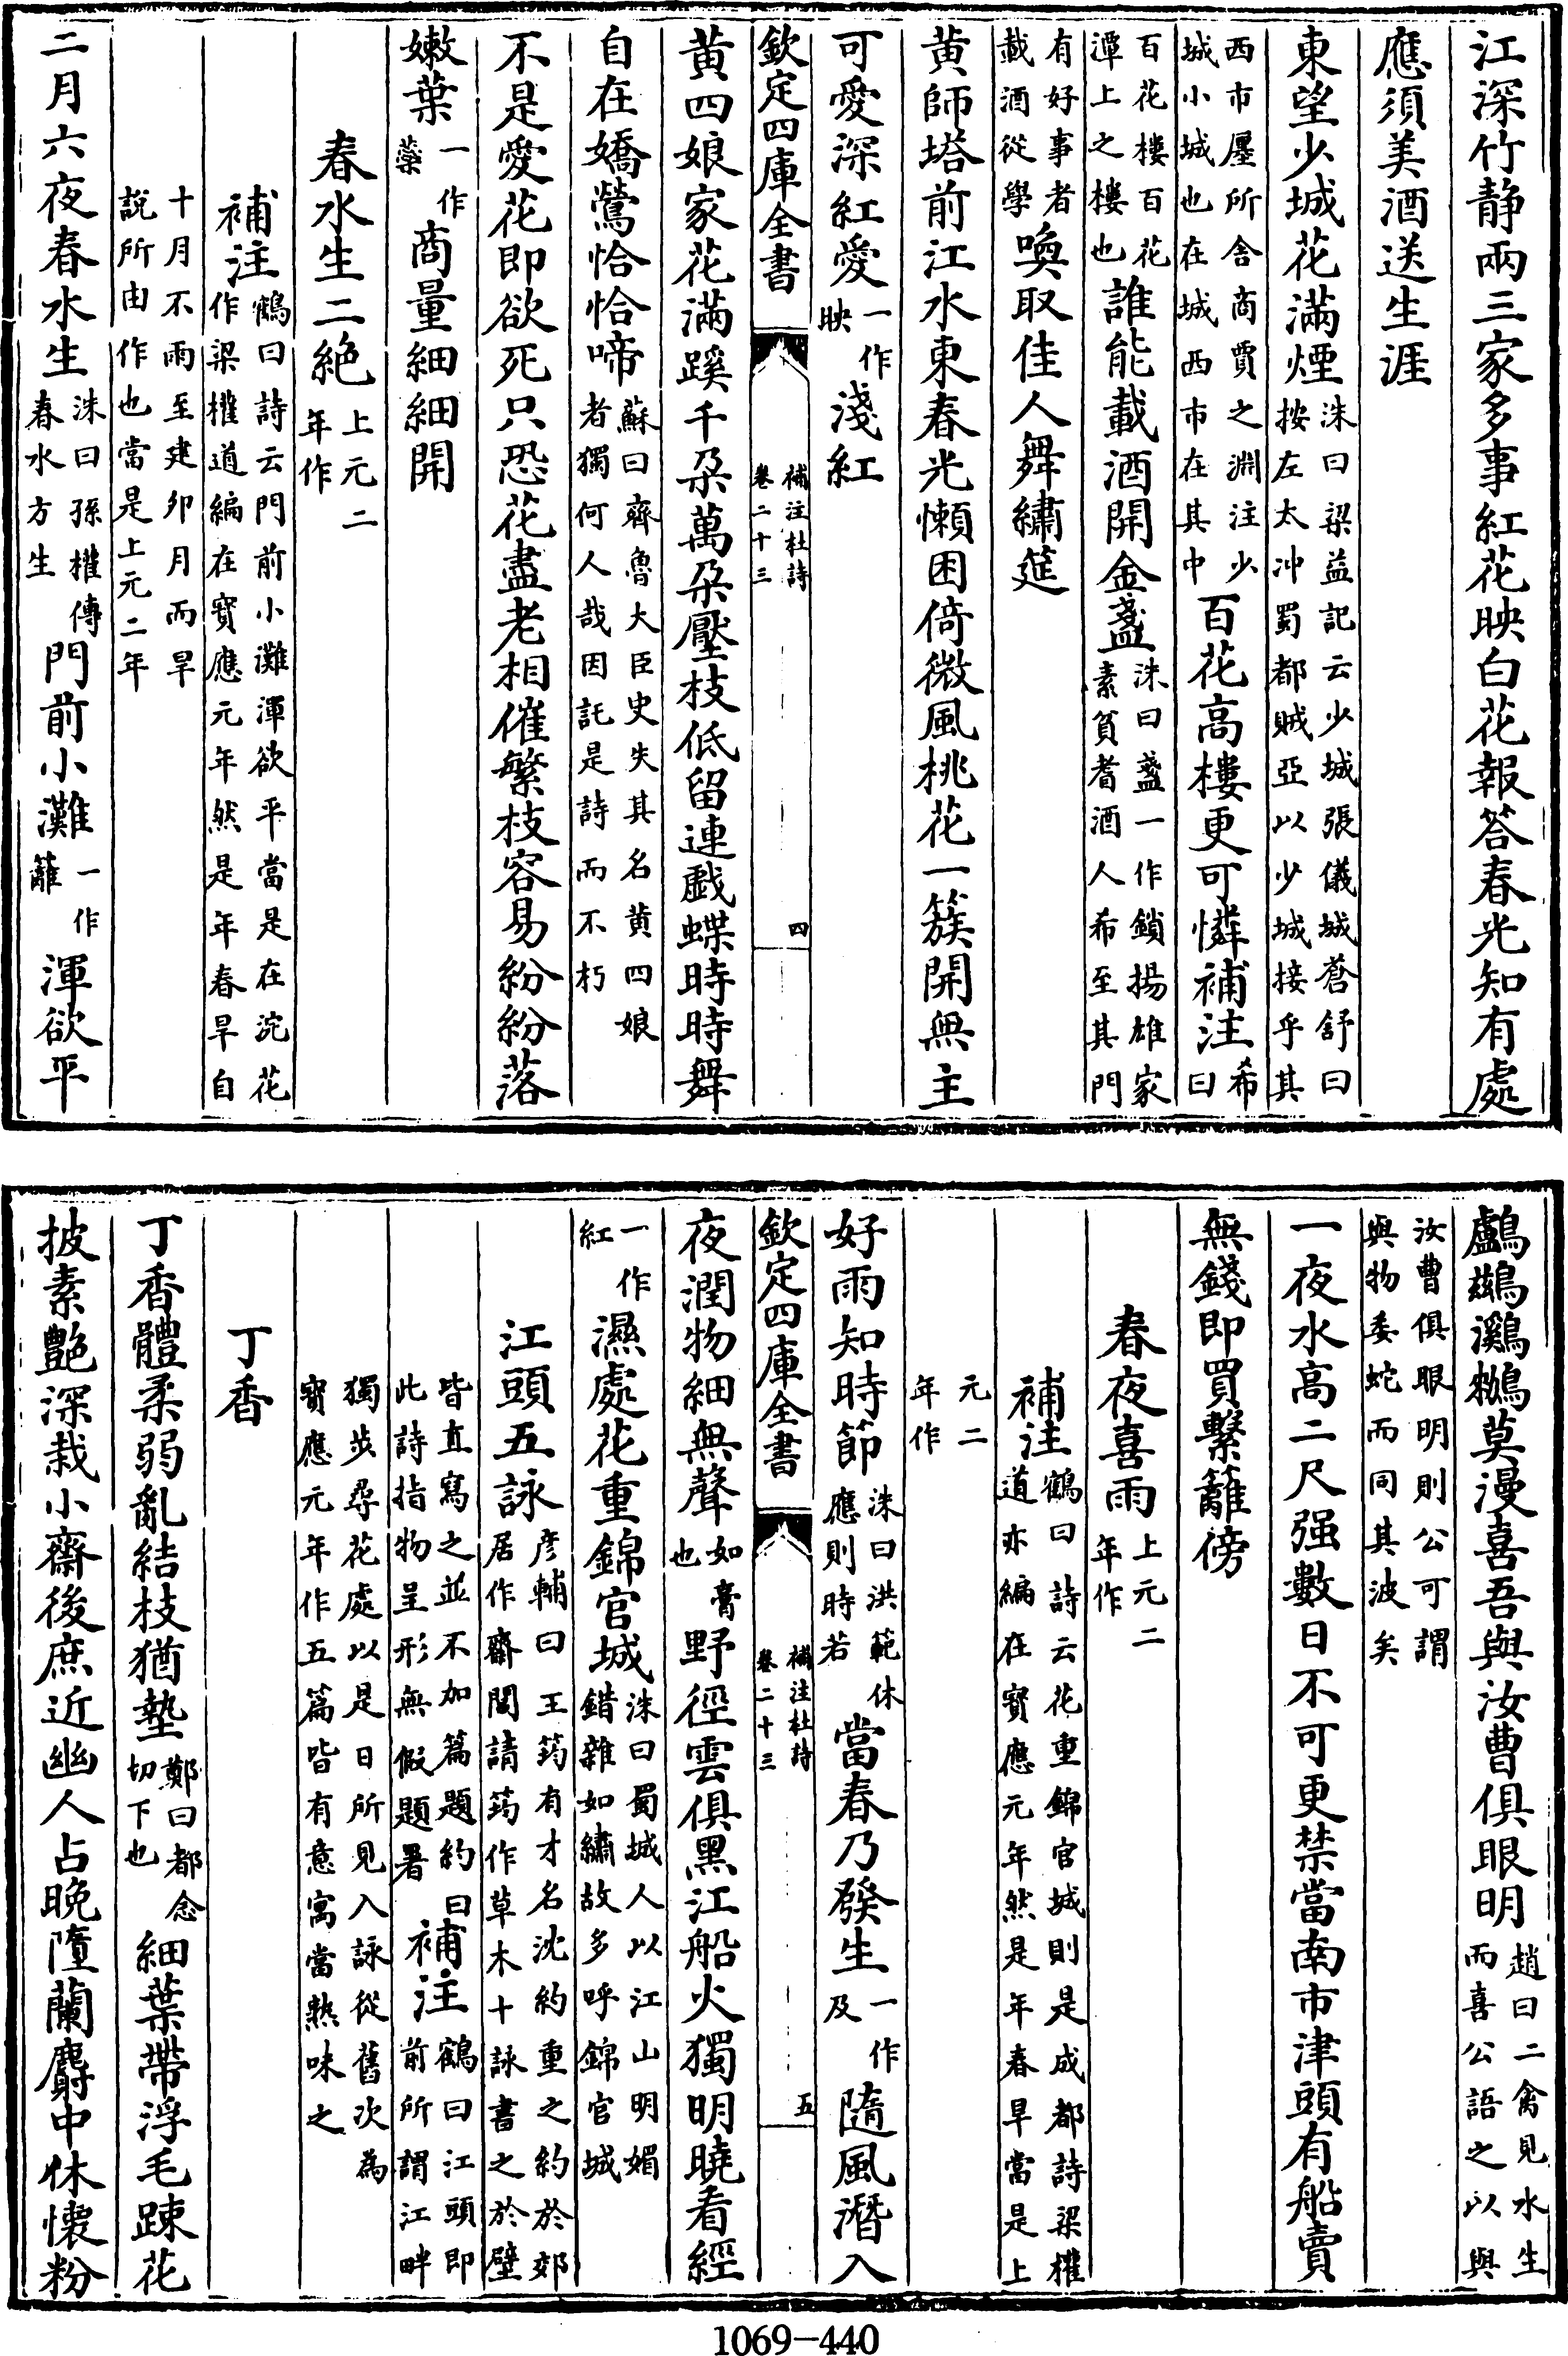 江深竹静兩三家多事紅花映白花報答春光知有處
應須美酒送生涯
東望少城花滿煙洙曰梁益記云少城張儀城蒼舒曰按左太冲蜀都賊亞以少城接乎其
西市㕓所舎商賈之淵注少城小城也在城西市在其中百花髙樓更可憐補注希曰
百花樓百花潭上之樓也誰能載酒開金盞洙曰盞一作鎖揚雄家素貧耆酒人希至其門
有好事者載酒從學喚取佳人舞繡筵
黄師塔前江水東春光懶困倚微風桃花一簇開無主
可愛深紅愛一作映淺紅
欽定四庫全書
補注杜詩卷二十三
四
黄四娘家花滿蹊千朶萬朶壓枝低留連戯蝶時時舞
自在嬌鶯恰恰啼蘇曰齊魯大臣史失其名黄四娘者獨何人哉因託是詩而不朽
不是愛花即欲死只恐花盡老相催繁枝容易紛紛落
嫩葉一作蘂商量細細開
春水生二絶上元二年作
補注鶴曰詩云門前小灘渾欲平當是在浣花作梁權道編在寳應元年然是年春旱自
十月不雨至建夘月而旱説所由作也當是上元二年
二月六夜春水生洙曰孫權傳春水方生門前小灘一作籬渾欲平
鸕鷀鸂鶒莫漫喜吾與汝曹俱眼明趙曰二禽見水生而喜公語之以與
汝曹俱眼明則公可謂與物委蛇而同其波矣
一夜水髙二尺强數日不可更禁當南市津頭有船賣
無錢即買繫籬傍
春夜喜雨上元二年作
補注鶴曰詩云花重錦官城則是成都詩梁權道亦編在寳應元年然是年春旱當是上
元二年作
好雨知時節洙曰洪範休應則時若當春乃發生一作及隨風潛入
欽定四庫全書
補注杜詩卷二十三
五
夜潤物細無聲如膏也野徑雲俱黑江船火獨明曉看經
一作紅濕處花重錦官城洙曰蜀城人以江山明媚錯雜如繡故多呼錦官城
江頭五詠彦輔曰王筠有才名沈約重之約於郊居作齋閣請筠作草木十詠書之於壁
皆直寫之並不加篇題約曰此詩指物呈形無假題署補注鶴曰江頭即前所謂江畔
獨歩尋花處以是日所見入詠從舊次為寳應元年作五篇皆有意寓當熟味之
丁香
丁香體柔弱亂結枝猶墊鄭曰都念切下也細葉帶浮毛踈花
披素艶深栽小齋後庶近幽人占晚墮蘭麝中休懷粉
1069-440